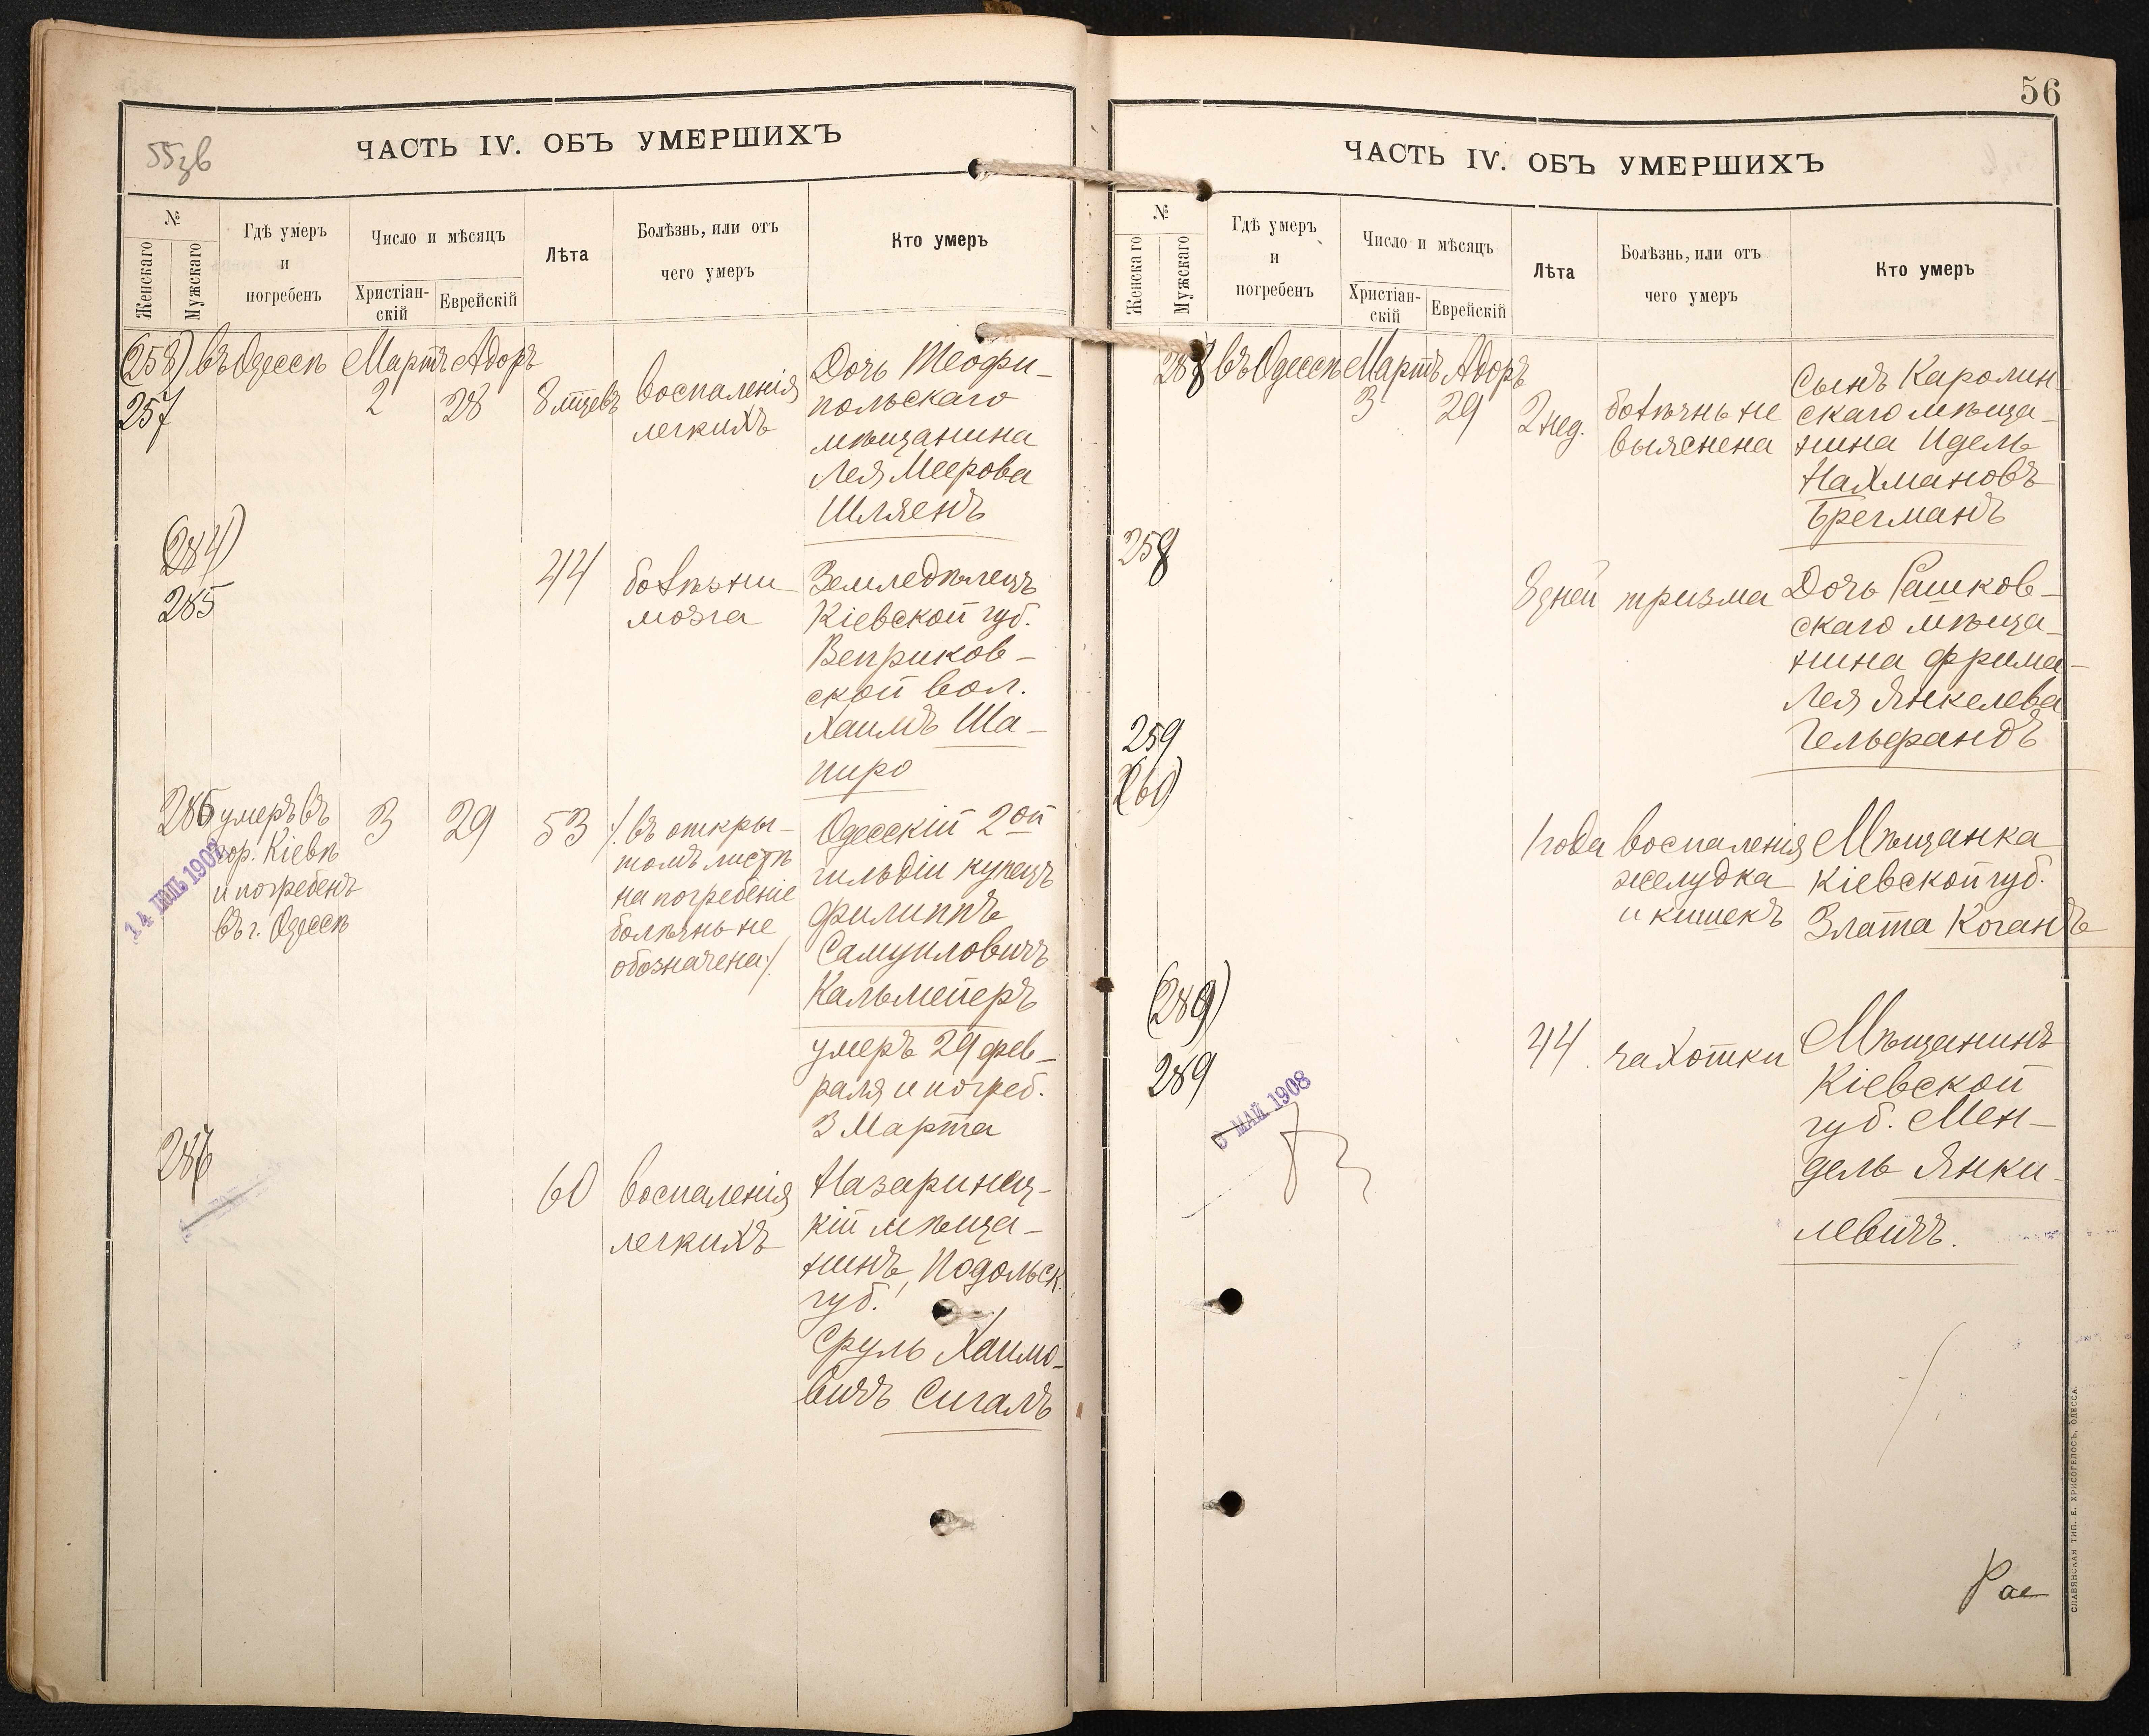 55зв
ЧАСТЬ IV. ОБЪ УМЕРШИХЪ
№
Женскаго
Мужскаго
Гдѣ умеръ
и
погребенъ
Число и мѣсяцъ
Христіан-
скій
Еврейскій
Лѣта
Болѣзнь, или отъ
чего умеръ
Кто умеръ
(258) въ Одессѣ Мартъ Адоръ
257
2
28
8 мѣсцевъ
воспаленія
легкихъ
Дочь Теофи-
польскаго
мѣщанина
Лея Меерова
Шляенъ
(284)
285
44
болѣзни
мозга
Земледѣлецъ
Кіевской губ.
Веприков-
ской вол.
Хаимъ Ша-
пиро
286
умеръ въ
гор. Кіевѣ
и погребенъ
въ г. Одессѣ
14 1907
3
29
53
/въ откры-
томъ листѣ
на погребеніе
болѣзнь не
обозначена/.
Одесскій 2ой
гильдіи купецъ
Филиппъ
Самуиловичъ
Кальмейеръ
умеръ 29 фев-
раля и погреб.
3 Марта
287
60
воспаленія
легкихъ
Назаринец-
кій мѣща-
нинъ, Подольск.
губ.
Сруль Хаимо-
вичъ Сигалъ
56
ЧАСТЬ IV. ОБЪ УМЕРШИХЪ
№
Женскаго
Мужскаго
Гдѣ умеръ
и
погребенъ
Число и мѣсяцъ
Христіан-
скій
Еврейскій
Лѣта
Болѣзнь, или отъ
чего умеръ
Кто умеръ
288 въ Одессѣ Мартъ Адоръ
3
29
2 нед.
болѣзнь не
выяснена
Сынъ Каролин-
скаго мѣща-
нина Идель
Нахмановъ
Брегманъ
258
8 дней
тризма
Дочь Рашков-
скаго мѣща-
нина Фрима-
Лея Янкелева
Гельфандъ
259
(260)
1 года
воспаленія
желудка
и кишекъ
Мѣщанка
Кіевской губ.
Злата Коганъ
(289)
289
3 МАЙ 1908
44
чахотки
Мѣщанинъ
Кіевской
губ. Мен-
дель Янки-
левичъ.
СЛАВЯНСКАЯ ТИП. Е. ХРИСОГЕЛОСЪ, ОДЕССА.